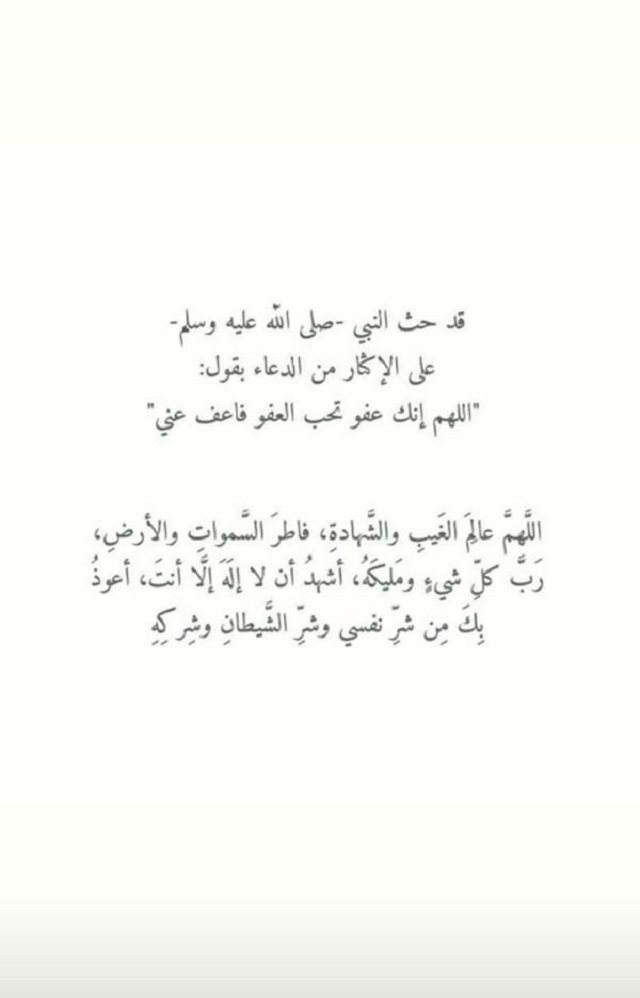 قد حث النبي -صلى الله عليه وسلم-
على الإكثار من الدعاء بقول:
"اللهم إنك عفو تحب العفو فاعف عني"
اللَّهمَّ عالِمَ الغَيبِ والشَّهادةِ، فاطرَ السَّمواتِ والأرضِ،
رَبَّ كلِّ شيءٍ ومَليكَهُ، أشهدُ أن لا إلَهَ إلَّا أنتَ، أعوذُ
بِكَ مِن شرِّ نفسي وشرِّ الشَّيطانِ وشِركِهِ